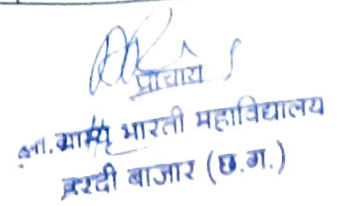 प्राचार्य
शा. ग्राम्य भारती महाविद्यालय
हरदी बाजार (छ.ग.)